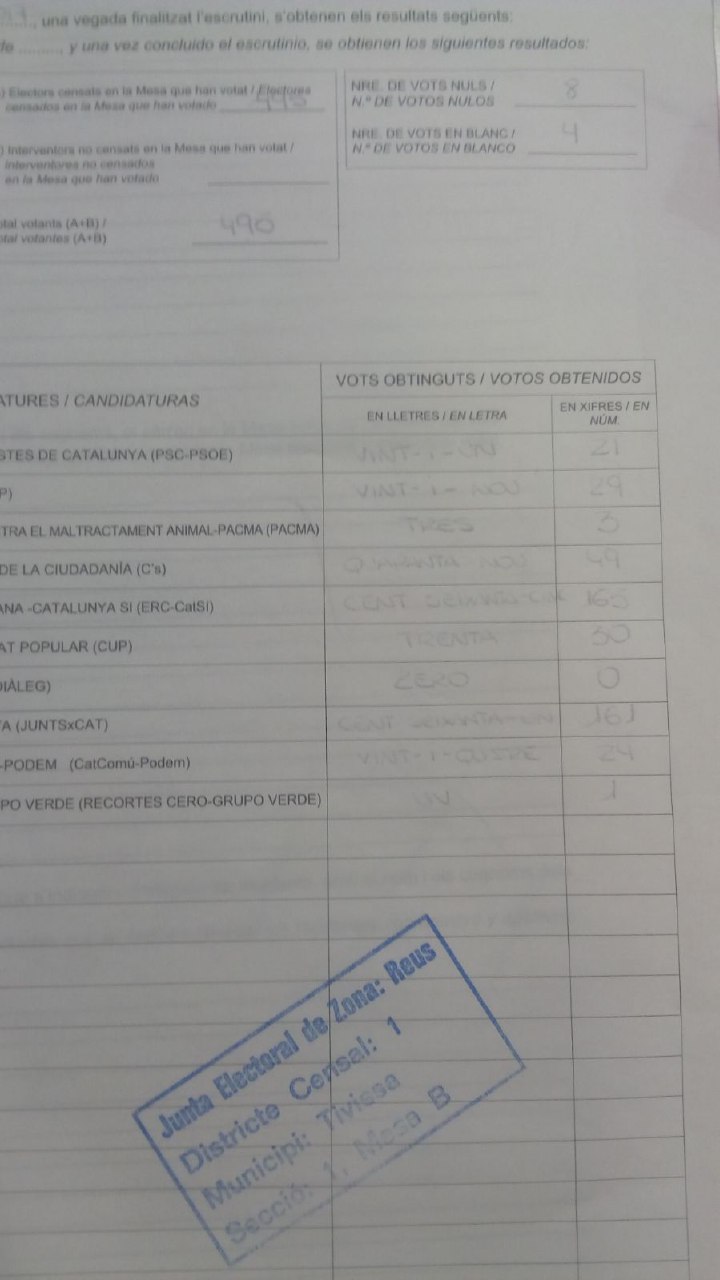 una vegada finalitzat l'escrutini, s'obtenen els resultats següents:
y una vez concluido el escrutinio, se obtienen los siguientes resultados:
) Electors censats en la Mesa que han votat / Electores
censados en la Mesa que han votado
) Interventors no censats en la Mesa que han votat /
interventores no censados
en la Mesa que han votado
otal votants (A+B) /
otal votantes (A+B)
490
NRE. DE VOTS NULS /
N.º DE VOTOS NULOS
8
NRE. DE VOTS EN BLANC /
N.º DE VOTOS EN BLANCO
4
ATURES / CANDIDATURAS
VOTS OBTINGUTS / VOTOS OBTENIDOS
EN LLETRES / EN LETRA
EN XIFRES / EN
NÚM.
STES DE CATALUNYA (PSC-PSOE) VINT-I-UN 21
P) VINT-I-NOU 29
TRA EL MALTRACTAMENT ANIMAL-PACMA (PACMA) TRES 3
DE LA CIUDADANÍA (C's) QUARANTA NOU 49
ANA -CATALUNYA SI (ERC-CatSI) CENT 165
AT POPULAR (CUP) TRENTA 30
DIÀLEG) ZERO 0
A (JUNTSxCAT) CENT SEIXANTA-UN 161
-PODEM (CatComú-Podem) 24
PO VERDE (RECORTES CERO-GRUPO VERDE) UN 1
Junta Electoral de Zona: Reus
Districte Censal: 1
Municipi: Tivissa
Secció: 1, Mesa B